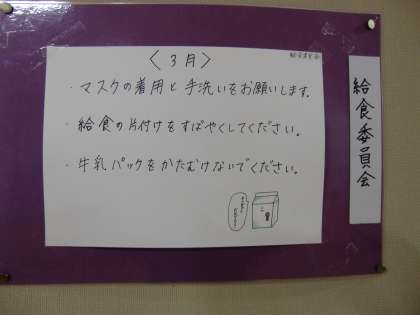 〈3月〉
・マスクの着用と手洗いをお願いします。
・給食の片付けをすばやくしてください。
・牛乳パックをかたむけないでください。
給食委員会